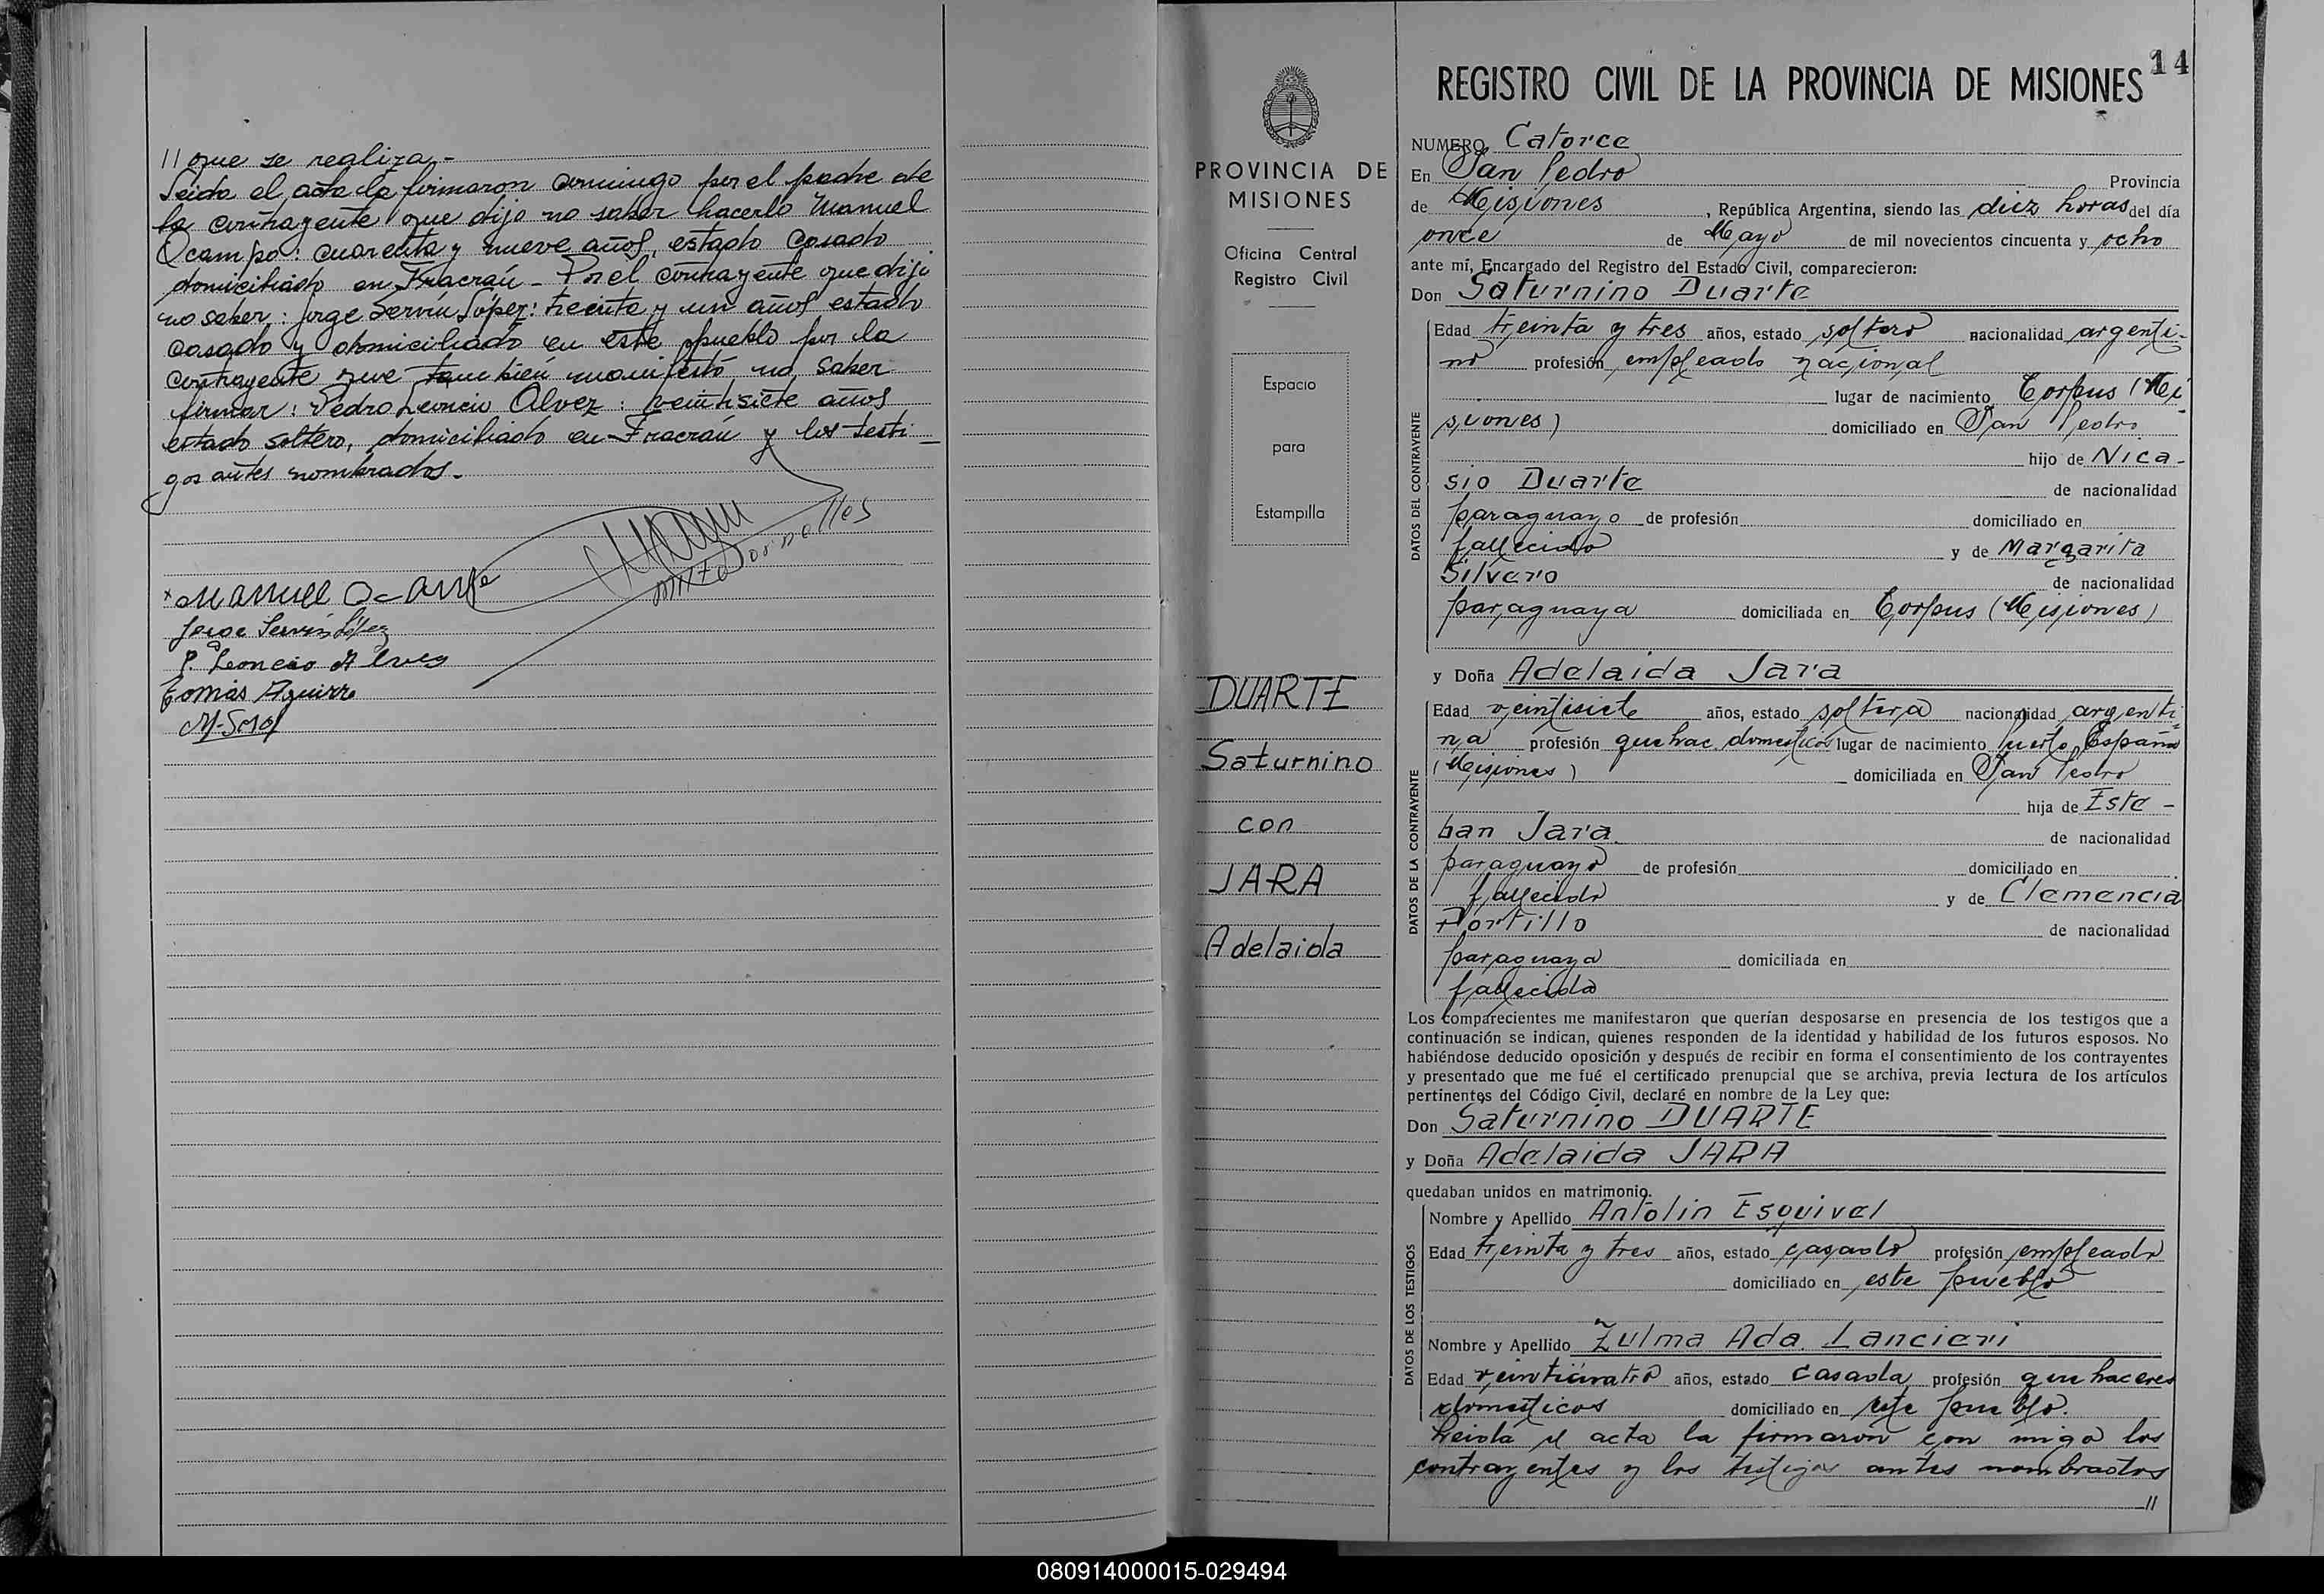 // que se realiza.-
Leida el acta la firmaron conmigo por el padre de
la contrayente que dijo no saber hacerlo Manuel
Ocampo: cuarenta y nueve años, estado casado
domiciliado en Fracrán - Por el contrayente que dijo
no saber: Jorge Servín López: treinta y un años estado
casado y domiciliado en este pueblo por la
contrayente que tambien manifestó no saber
firmar: Pedro Leoncio Alvez: veintisiete años
estado soltero, domiciliado en Fracrán y los testi-
gos antes nombrados.-
Manuel Ocampo
Jorge Servín López
P. Leoncio Alvez
Tomás Aguirre
PROVINCIA DE
MISIONES
Oficina Central
Registro Civil
Espacio
para
Estampilla
DUARTE
Saturnino
con
JARA
Adelaida
14
REGISTRO CIVIL DE LA PROVINCIA DE MISIONES
NUMERO Catorce
En San Pedro Provincia
de Misiones, República Argentina, siendo las diez horas del día
once de Mayo de mil novecientos cincuenta y ocho
ante mí, Encargado del Registro del Estado Civil, comparecieron:
Don Saturnino Duarte
DATOS DEL CONTRAYENTE
Edad treinta y tres años, estado soltero nacionalidad argenti-
no profesión empleado nacional
lugar de nacimiento Corpus (Mi-
siones) domiciliado en San Pedro
hijo de Nica-
sio Duarte de nacionalidad
paraguayo de profesión domiciliado en
fallecido y de Margarita
Silvero de nacionalidad
paraguaya domiciliada en Corpus (Misiones)
y Doña Adelaida Jara
DATOS DE LA CONTRAYENTE
Edad veintisiete años, estado soltera nacionalidad argenti-
na profesión quehac. domesticos lugar de nacimiento Puerto España
(Misiones) domiciliada en San Pedro
hija de Este-
ban Jara de nacionalidad
paraguayo de profesión domiciliado en
fallecido y de Clemencia
Portillo de nacionalidad
paraguaya domiciliada en
fallecida
Los comparecientes me manifestaron que querían desposarse en presencia de los testigos que a
continuación se indican, quienes responden de la identidad y habilidad de los futuros esposos. No
habiéndose deducido oposición y después de recibir en forma el consentimiento de los contrayentes
y presentado que me fué el certificado prenupcial que se archiva, previa lectura de los artículos
pertinentes del Código Civil, declaré en nombre de la Ley que:
Don Saturnino DUARTE
y Doña Adelaida JARA
quedaban unidos en matrimonio.
DATOS DE LOS TESTIGOS
Nombre y Apellido Antolin Esquivel
Edad treinta y tres años, estado casado profesión empleado
domiciliado en este pueblo
Nombre y Apellido Zulma Ada Lancieri
Edad veinticuatro años, estado casada profesión quehaceres
domesticos domiciliado en este pueblo.
Leida el acta la firmaron con migo los
contrayentes y los testigos antes nombrados
//
080914000015-029494